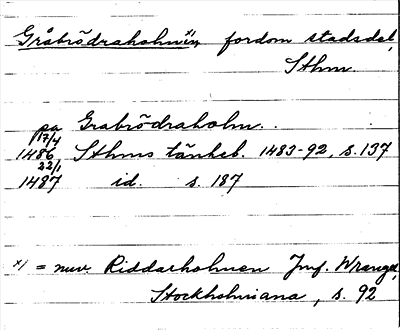 Gråbrödraholmen x), fordom stadsdel,
Sthm.
pa Grabrödraholm.
17/4
1486 Sthms tänkeb. 1483-92, s. 137
22/1
1487 id. s. 187
x) = nuv. Riddarholmen Jmf. Wrangel,
Stockholmiana, s. 92